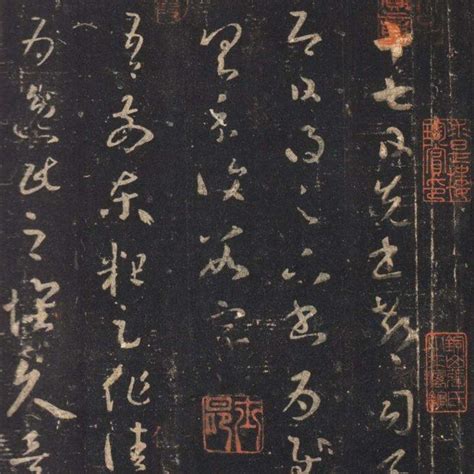 十七日先書郗司馬
即日得足下書為慰
具示復數字
吾前東粗足作佳
為逸民之懷久矣